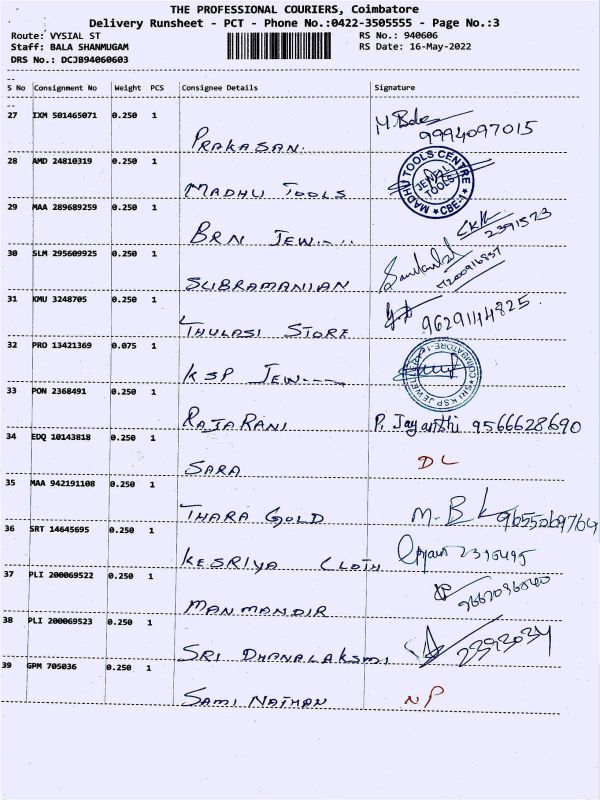 THE PROFESSIONAL COURIERS, Coimbatore
Delivery Runsheet - PCT - Phone No.:0422-3505555 - Page No.:3
Route: VYSIAL ST RS No.: 940606
Staff: BALA SHANMUGAM RS Date: 16-May-2022
DRS No.: DCJB94060603
S No Consignment No Weight PCS Consignee Details Signature
27 IXM 501465071 0.250 1
PRAKASAN. 9994097015
28 AMD 24810319 0.250 1
MADHU TOOLS MADHU TOOLS CENTRE JEWELL TOOLS CBE-1
29 MAA 289689259 0.250 1
BRN JEW 2391573
30 SLM 295609925 0.250 1
SUBRAMANIAN
31 KMU 3248705 0.250 1
THULASI STORE 9629114825
32 PRO 13421369 0.075 1
KSP JEW SRI KSP JEWEL COIMBATORE-1
33 PON 2368491 0.250 1
RAJA RANI P. Jayanthi 9566628690
34 EDQ 10143818 0.250 1
SARA DL
35 MAA 942191108 0.250 1
THARA GOLD M. B
36 SRT 14645695 0.250 1
KESRIYA CLOTH
37 PLI 200069522 0.250 1
MANMANDIR
38 PLI 200069523 0.250 1
SRI DHANALAKSMI 2393034
39 GPM 705036 0.250 1
SAMI NATHAN NP